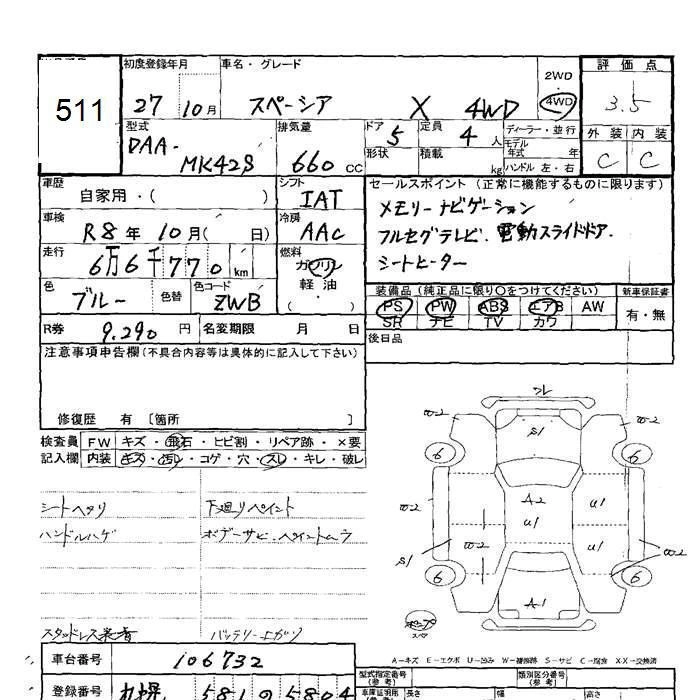 511
初度登録年月
27 10月
車名・グレード
スペーシア X 4WD
2WD
4WD
評価点
3.5
型式
DAA-
MK42S
排気量
660 CC
ドア 5
定員 4人
形状
積載 kg
ディーラー・並行
モデル年式 年
ハンドル 左・右
外装 内装
C C
車歴
自家用・( )
シフト
IAT
セールスポイント (正常に機能するものに限ります)
メモリーナビゲーション
フルセグテレビ. 電動スライドドア.
シートヒーター
車検
R8年 10月( 日)
冷房
AAC
走行
6万6千770km
燃料
ガソリン
軽油
( )
色
ブルー
色替
色コード
ZWB
装備品 (純正品に限り○をつけてください)
新車保証書
PS PW ABS エアB AW
SR ナビ TV カワ
有・無
R券 9,290円
名変期限 月 日
後日品
注意事項申告欄(不具合内容等は具体的に記入して下さい)
修復歴 有 〔箇所 〕
検査員 FW キズ・飛石・ヒビ割・リペア跡・×要
記入欄 内装 キズ・汚レ・コゲ・穴・スレ・キレ・破レ
シートヘタリ
ハンドルハゲ
下廻りペイント
ボデーサビ. ペイントムラ
スタッドレス装着
バッテリー上ガリ
W-2 W-2
S1
6 6
A2
U1 U1
W-2
W-2
S1
U1
W-2
6 6
A1
スペア
A-キズ E-エクボ U-凹み W-補修跡 S-サビ C-腐食 XX-交換済
車台番号 106732
登録番号 札幌 581 の 5804
型式指定番号
(参考)
類別区分番号
(参考)
長さ 幅 高さ